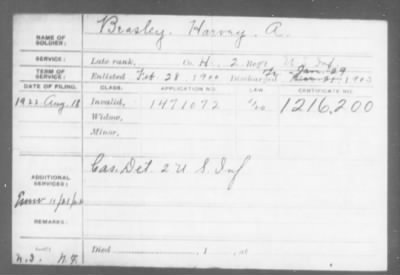 NAME OF SOLDIER: Brasley, Harvey A.
SERVICE: Late rank, Co. H, 2 Reg't U. S. Inf
TERM OF SERVICE: Enlisted Feb. 28, 1900 Discharged Jan. 29 1903
DATE OF FILING. CLASS. APPLICATION NO. LAW. CERTIFICATE NO.
1922 Aug. 18 Invalid, 1471072 1216,200
Widow,
Minor,
ADDITIONAL SERVICES: Cas. Det. 2 U S. Inf
REMARKS:
Died , 1 , at
N.J.